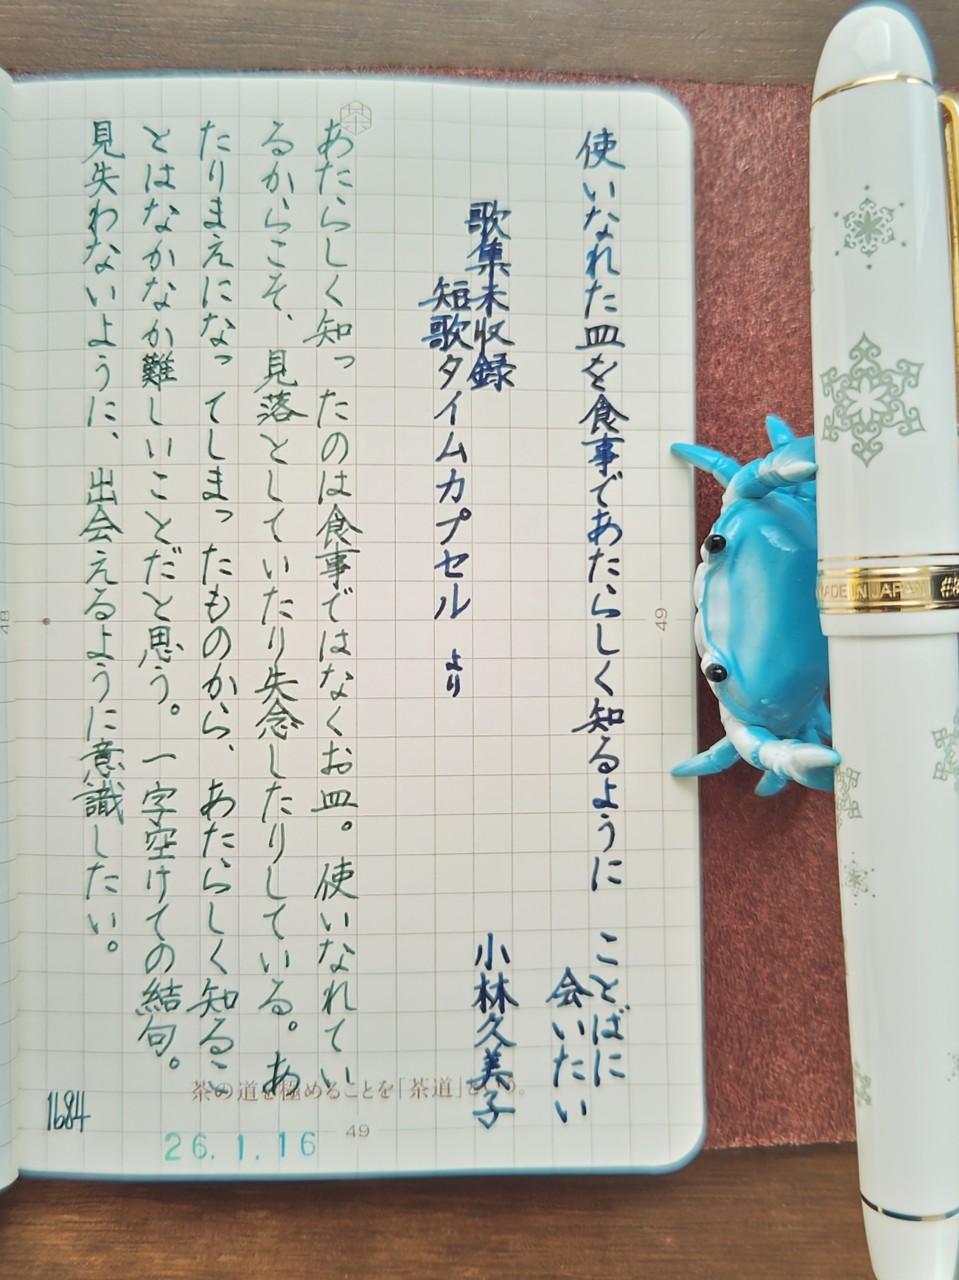 使いなれた皿を食事であたらしく知るように　ことばに
会いたい
歌集未収録
短歌タイムカプセル　より
小林久美子
あたらしく知ったのは食事ではなくお皿。使いなれてい
るからこそ、見落としていたり失念したりしている。あ
たりまえになってしまったものから、あたらしく知るこ
とはなかなか難しいことだと思う。一字空けての結句。
見失わないように、出会えるように意識したい。
茶の道を極めることを「茶道」という。
1684
26.1.16
49
49
48
MADE IN JAPAN